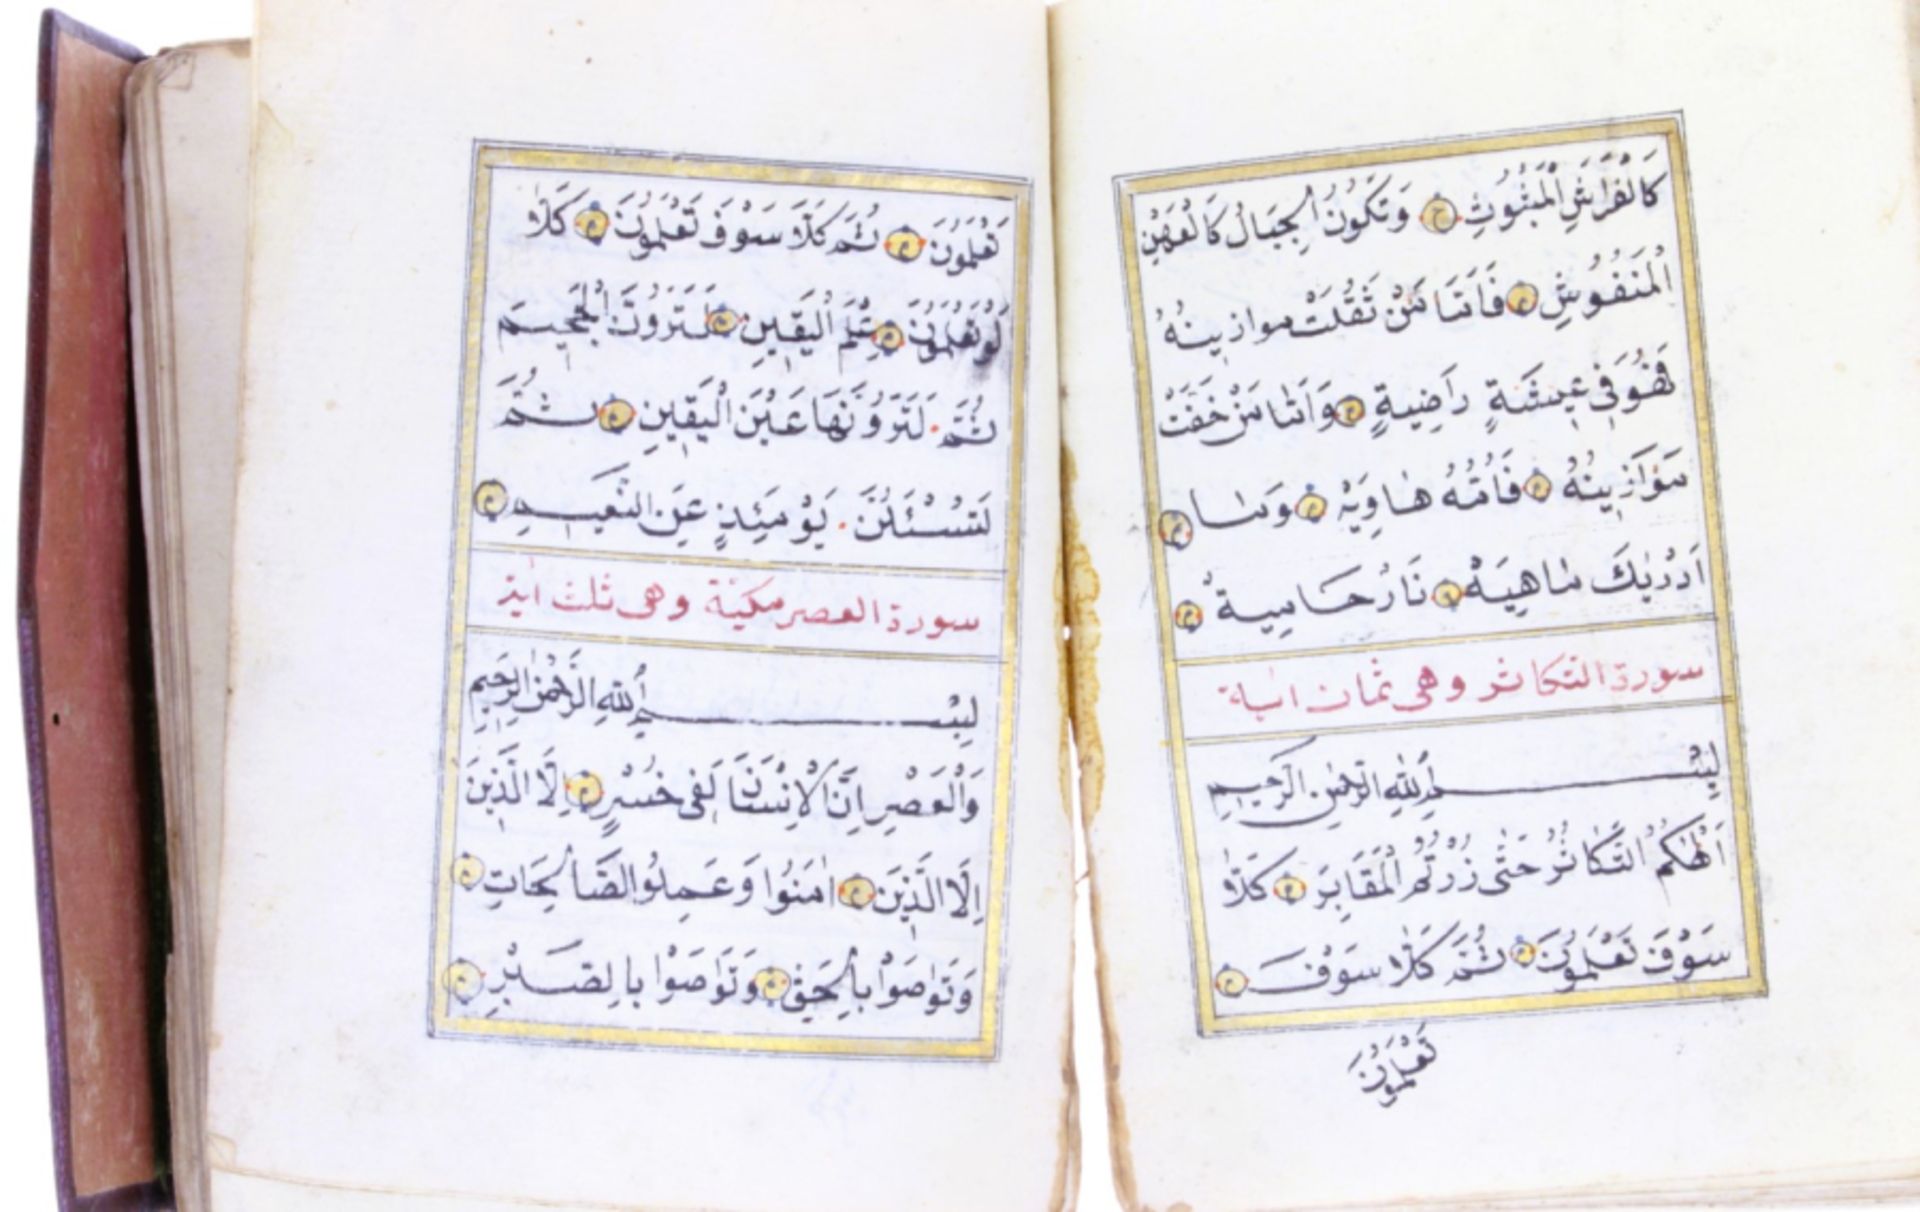 كَالْفَرَاشِ الْمَبْثُوثِ وَتَكُونُ الْجِبَالُ كَالْعِهْنِ
الْمَنْفُوشِ فَاَمَّا مَنْ ثَقُلَتْ مَوَازِينُهُ
فَهُوَ فِي عِيشَةٍ رَاضِيَةٍ وَاَمَّا مَنْ خَفَّتْ
مَوَازِينُهُ فَاُمُّهُ هَاوِيَةٌ وَمَا
اَدْرٰيكَ مَاهِيَهْ نَارٌ حَامِيَةٌ
سورة التكاثر وهى ثمان اية
بِسْمِ اللّٰهِ الرَّحْمٰنِ الرَّحِيمِ
اَلْهٰيكُمُ التَّكَاثُرُ حَتّٰى زُرْتُمُ الْمَقَابِرَ كَلَّا
سَوْفَ تَعْلَمُونَ ثُمَّ كَلَّا سَوْفَ
تَعْلَمُونَ
تَعْلَمُونَ ثُمَّ كَلَّا سَوْفَ تَعْلَمُونَ كَلَّا
لَوْ تَعْلَمُونَ عِلْمَ الْيَقِينِ لَتَرَوُنَّ الْجَحِيمَ
ثُمَّ لَتَرَوُنَّهَا عَيْنَ الْيَقِينِ ثُمَّ
لَتُسْئَلُنَّ يَوْمَئِذٍ عَنِ النَّعِيمِ
سورة العصر مكية وهى ثلث اية
بِسْمِ اللّٰهِ الرَّحْمٰنِ الرَّحِيمِ
وَالْعَصْرِ اِنَّ الْاِنْسَانَ لَفِى خُسْرٍ اِلَّا الَّذِينَ
اِلَّا الَّذِينَ اٰمَنُوا وَعَمِلُوا الصَّالِحَاتِ
وَتَوَاصَوْا بِالْحَقِّ وَتَوَاصَوْا بِالصَّبْرِ